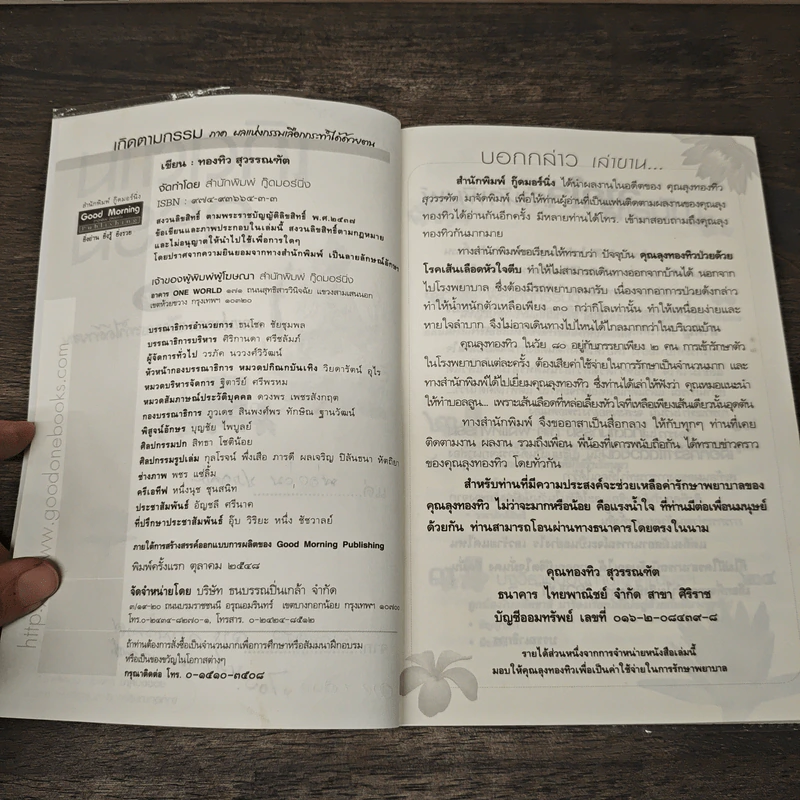 เกิดตามกรรม ภาค ผลแห่งกรรมเลือกกระทำได้ด้วยตน
เขียน : ทองทิว สุวรรณฑัต
สำนักพิมพ์ กู๊ดมอร์นิ่ง
Good Morning
ยิ่งอ่าน ยิ่งรู้ ยิ่งรวย
จัดทำโดย สำนักพิมพ์ กู๊ดมอร์นิ่ง
ISBN : ๙๗๔-๙๓๖๖๔-๓-๓
สงวนลิขสิทธิ์ ตามพระราชบัญญัติลิขสิทธิ์ พ.ศ.๒๕๓๗
ข้อเขียนและภาพประกอบในเล่มนี้ สงวนลิขสิทธิ์ตามกฎหมาย
และไม่อนุญาตให้นำไปใช้เพื่อการใดๆ
โดยปราศจากความยินยอมจากทางสำนักพิมพ์ เป็นลายลักษณ์อักษร
เจ้าของผู้พิมพ์ผู้โฆษณา สำนักพิมพ์ กู๊ดมอร์นิ่ง
อาคาร ONE WORLD ๑๗๑ ถนนสุทธิสารวินิจฉัย แขวงสามเสนนอก
เขตห้วยขวาง กรุงเทพฯ ๑๐๓๒๐
บรรณาธิการอำนวยการ ธนโชค ชัยชุมพล
บรรณาธิการบริหาร ศิริกานดา ศรีชลัมภ์
ผู้จัดการทั่วไป วรภัค นววงศ์วิวัฒน์
หัวหน้ากองบรรณาธิการ หมวดปกิณกบันเทิง วิยดารัตน์ อุไร
หมวดบริหารจัดการ ฐิตารีย์ ศรีพรหม
หมวดสัมภาษณ์ประวัติบุคคล ดวงพร เพชรสังกฤต
กองบรรณาธิการ ภูวเดช สินพงศ์พร ทักษิณ ฐานวัฒน์
พิสูจน์อักษร บุญชัย ไพบูลย์
ศิลปกรรมปก สิทธา โชติน้อย
ศิลปกรรมรูปเล่ม กุลโรจน์ พึ่งเสือ ภารดี ผลเจริญ ปิลันธนา หัตถิยา
ช่างภาพ พชร แซ่ลิ้ม
ครีเอทีฟ หนึ่งนุช ชูนสนิท
ประชาสัมพันธ์ อัญชลี ศรีนาค
ที่ปรึกษาประชาสัมพันธ์ อุ๊บ วิริยะ หนึ่ง ชัชวาลย์
ภายใต้การสร้างสรรค์ออกแบบการผลิตของ Good Morning Publishing
พิมพ์ครั้งแรก ตุลาคม ๒๕๔๘
จัดจำหน่ายโดย บริษัท ธนบรรณปิ่นเกล้า จำกัด
๓/๑๙-๒๐ ถนนบรมราชชนนี อรุณอมรินทร์ เขตบางกอกน้อย กรุงเทพฯ ๑๐๗๐๐
โทร.๐-๒๔๓๔-๘๒๗๐-๑, โทรสาร. ๐-๒๔๒๔-๘๕๑๒
ถ้าท่านต้องการสั่งซื้อเป็นจำนวนมากเพื่อการศึกษาหรือสัมมนาฝึกอบรม
หรือเป็นของขวัญในโอกาสต่างๆ
กรุณาติดต่อ โทร. ๐-๑๕๑๐-๓๕๐๘
www.goodonebooks.com
บอกกล่าว เล่าขาน...
สำนักพิมพ์ กู๊ดมอร์นิ่ง ได้นำผลงานในอดีตของ คุณลุงทองทิว
สุวรรณฑัต มาจัดพิมพ์ เพื่อให้ผู้อ่านที่เป็นแฟนติดตามผลงานของคุณลุง
ทองทิวได้อ่านกันอีกครั้ง มีหลายท่านได้โทร. เข้ามาสอบถามถึงคุณลุง
ทองทิวกันมากมาย
ทางสำนักพิมพ์ขอเรียนให้ทราบว่า ปัจจุบัน คุณลุงทองทิวป่วยด้วย
โรคเส้นเลือดหัวใจตีบ ทำให้ไม่สามารถเดินทางออกจากบ้านได้ นอกจาก
ไปโรงพยาบาล ซึ่งต้องมีรถพยาบาลมารับ เนื่องจากอาการป่วยดังกล่าว
ทำให้น้ำหนักตัวเหลือเพียง ๓๐ กว่ากิโลเท่านั้น ทำให้เหนื่อยง่ายและ
หายใจลำบาก จึงไม่อาจเดินทางไปไหนได้ไกลมากกว่าในบริเวณบ้าน
คุณลุงทองทิว ในวัย ๘๐ อยู่กับภรรยาเพียง ๒ คน การเข้ารักษาตัว
ในโรงพยาบาลแต่ละครั้ง ต้องเสียค่าใช้จ่ายในการรักษาเป็นจำนวนมาก และ
ทางสำนักพิมพ์ได้ไปเยี่ยมคุณลุงทองทิว ซึ่งท่านได้เล่าให้ฟังว่า คุณหมอแนะนำ
ให้ทำบอลลูน.. เพราะเส้นเลือดที่หล่อเลี้ยงหัวใจที่เหลือเพียงเส้นเดียวนั้นอุดตัน
ทางสำนักพิมพ์ จึงขออาสาเป็นสื่อกลาง ให้กับทุกๆ ท่านที่เคย
ติดตามงาน ผลงาน รวมถึงเพื่อน พี่น้องที่เคารพนับถือกัน ได้ทราบข่าวคราว
ของคุณลุงทองทิว โดยทั่วกัน
สำหรับท่านที่มีความประสงค์จะช่วยเหลือค่ารักษาพยาบาลของ
คุณลุงทองทิว ไม่ว่าจะมากหรือน้อย คือแรงน้ำใจ ที่ท่านมีต่อเพื่อนมนุษย์
ด้วยกัน ท่านสามารถโอนผ่านทางธนาคารโดยตรงในนาม
คุณทองทิว สุวรรณฑัต
ธนาคาร ไทยพาณิชย์ จำกัด สาขา ศิริราช
บัญชีออมทรัพย์ เลขที่ ๐๑๖-๒-๐๘๔๓๙-๘
รายได้ส่วนหนึ่งจากการจำหน่ายหนังสือเล่มนี้
มอบให้คุณลุงทองทิวเพื่อเป็นค่าใช้จ่ายในการรักษาพยาบาล